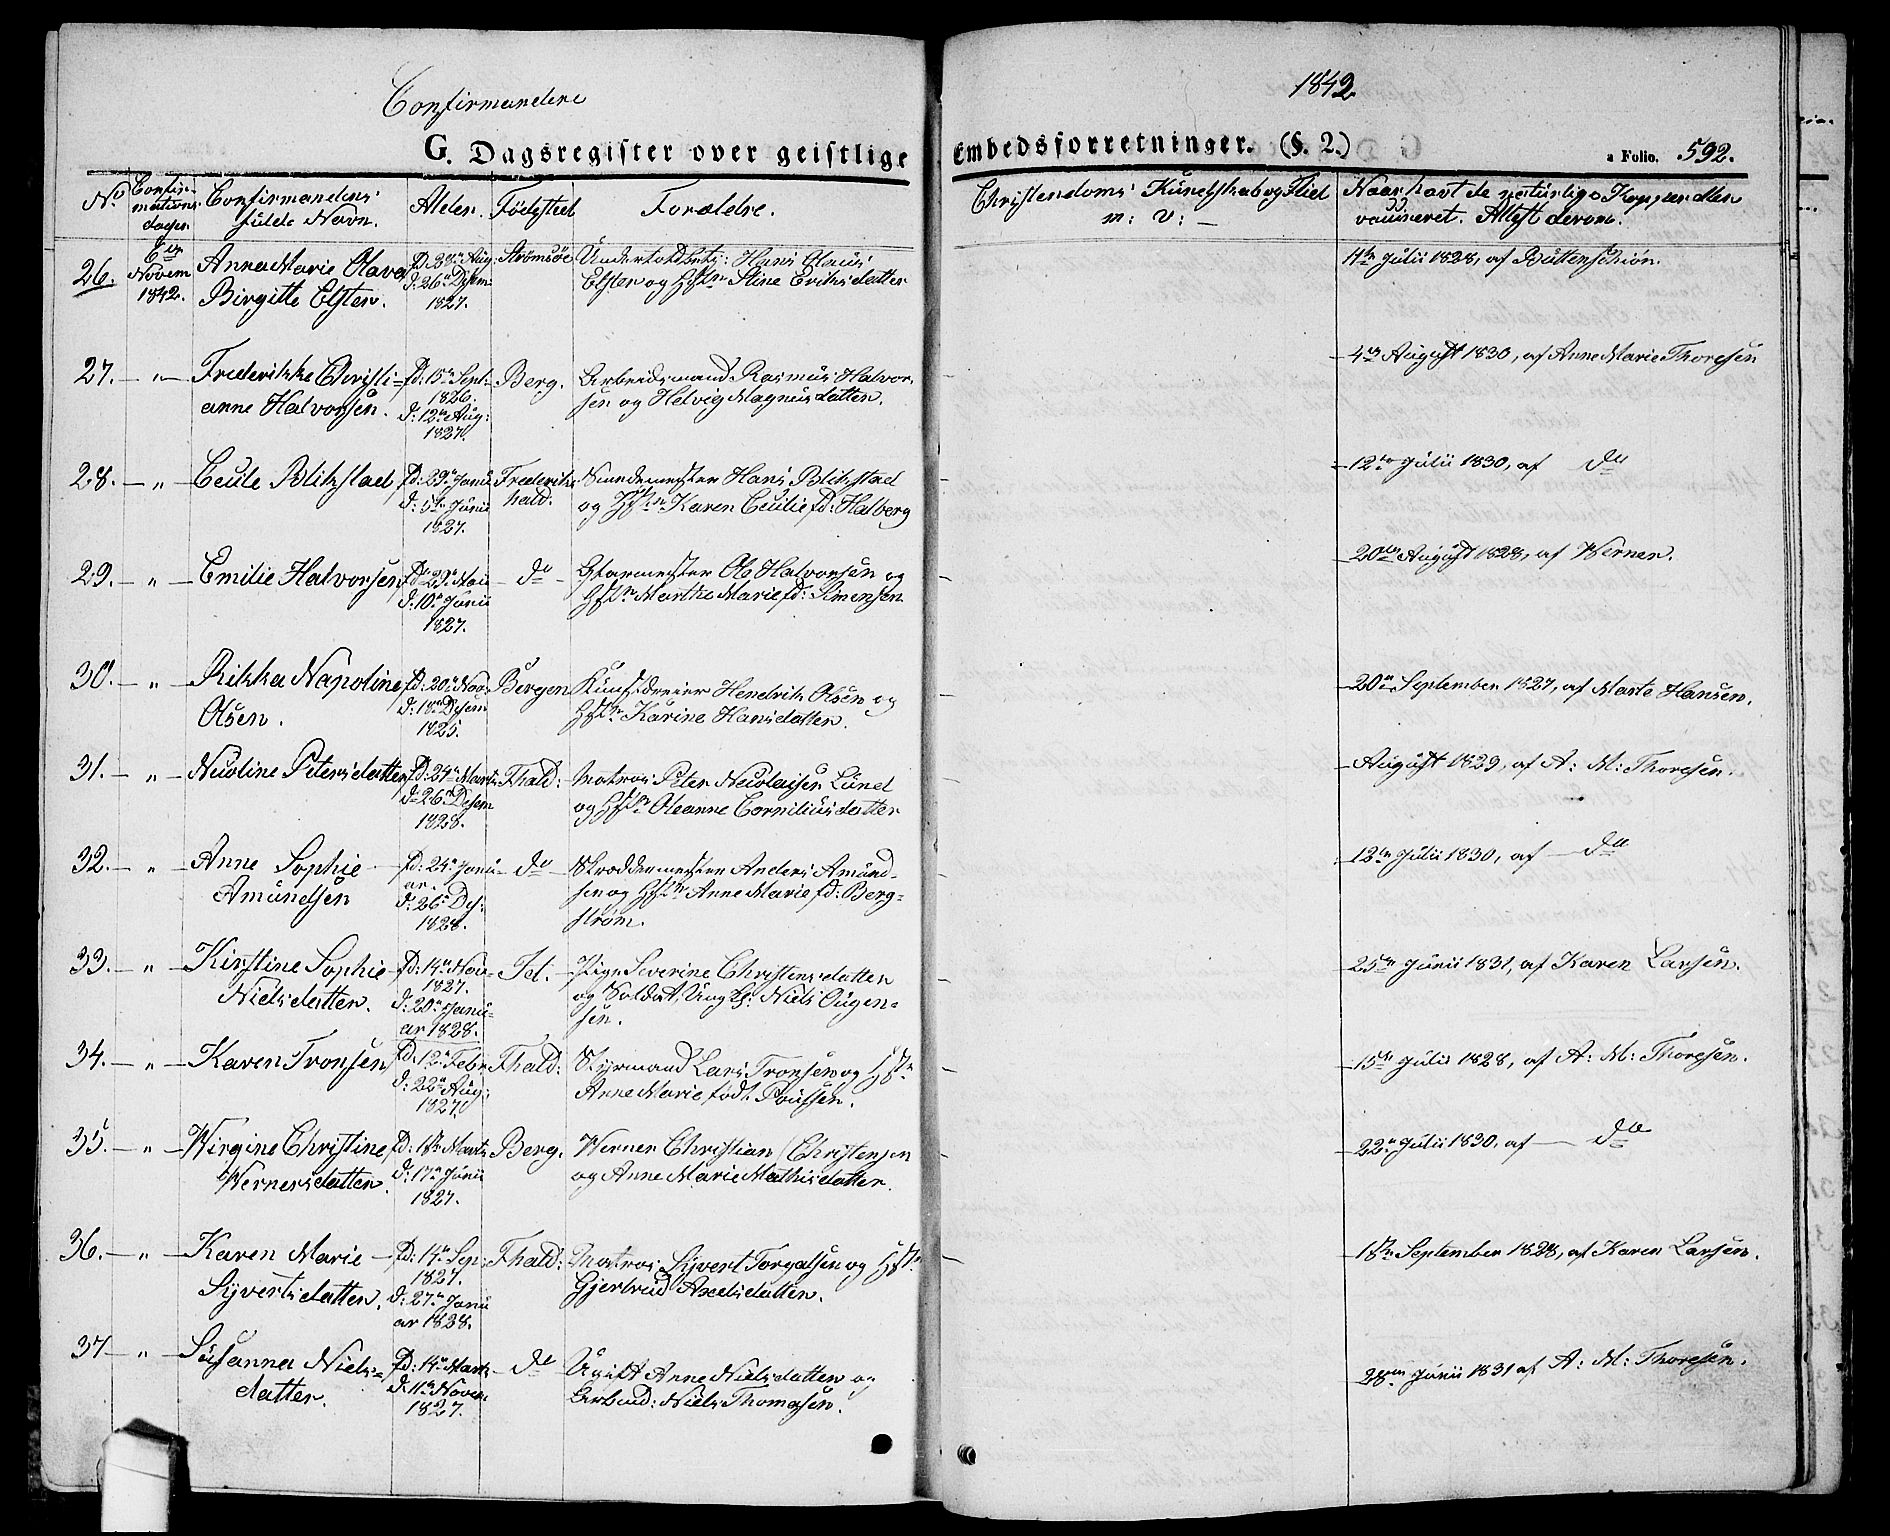 Confirmandere
1842
G. Dagsregister over geistlige Embedsforretninger. (§. 2.)
a Folio. 592.
No
Confir-
mations
dagen
Confirmandens
fulde Navn.
Alder.
Fødested
Forældre.
Christendoms Kundskab og Flid
m: v: —
Naar havt de naturlige Kopper eller
vaccineret. Attest derom.
26.
6te
Novem
1842.
Anne Marie Olava
Birgitte Elster.
fd. 28de Aug
d: 26de Desem
1827.
Strømsöe
Undertoldbetj: Hans Claus
Elster og Hstr Stine Eriksdatter
11te Julii 1828, af Büttenschiøn.
27. — " —
Frederikke Christi=
anne Halvorsen.
fd: 15de Sept
1826.
d: 12te Aug:
1827.
Berg.
Arbeidsmand Rasmus Halvor
sen og Helvig Magnusdatter.
4de August 1830, af Anne Marie Thoresen
28. — " —
Cecile Blikstad
fd: 29de Janu
d: 5te Junii
1827.
Frederiks
hald.
Smedemester Hans Blikstad
og Hstr Karen Cecilie fd: Halberg
12te Julii 1830, af do
29. — " —
Emilie Halvorsen
fd: 29de Mai
d: 10de Junii
1827.
do
Glarmester Ole Halvorsen og
Hstr Marthe Marie fd: Simensen.
20de August 1828, af Werner.
30. — " —
Rikka Napoline
Olsen.
fd: 20de Nov:
d: 18de Desem
1825.
Bergen
Kunstdreier Hendrik Olsen og
Hstr Karine Hansdatter.
20de September 1827, af Marte Hansen.
31. — " —
Nicoline Petersdatter
fd: 24de Marts
d: 26de Desem
1828.
Fhald:
Matros Peter Nicolaisen Lund
og Hstr Oleanne Corniliusdatter
August 1829, af A: M: Thoresen.
32. — " —
Anne Sophie
Amundsen
fd: 24de Janu
ar.
d: 26de Des:
1828.
do
Skreddermester Anders Amund-
sen og Hstr Anne Marie fd: Berg=
strøm.
12te Julii 1830, af — do
33. — " —
Kirstine Sophie
Nielsdatter.
fd: 14de Nov
1827.
d: 20de Janu-
ar 1828.
Id.
Pige Severine Christensdatter
og Soldat, Ungk: Niels Ougen=
sen.
25de Junii 1831, af Karen Larsen.
34. — " —
Karen Tronsen
fd: 12te Febr
d: 22de Aug:
1827.
Fhald:
Styrmand Lars Tronsen og Hstr
Anne Marie, født Poulsen.
15de Julii 1828, af A: M: Thoresen.
35. — " —
Wirgine Christine
Wernersdatter.
fd: 18de Marts
d: 17de Junii
1827.
Berg.
Werner Christian Christensen
og Anne Marie Mathisdatter.
22de Julii 1830, af — do
36. — " —
Karen Marie
Syvertsdatter.
fd: 14de Sep:
1827.
d: 27de Janu
ar 1828.
Fhald:
Matros Syvert Torgalsen og Hstr
Gjertrud Axelsdatter.
18de September 1828, af Karen Larsen.
37 — " —
Susanna Niels=
datter.
fd: 14de Marts
d: 11te Novem
1827.
do
Ugift Anne Nielsdatter og
Arbmd: Niels Thomasen.
28de Junii 1831 af A: M: Thoresen.